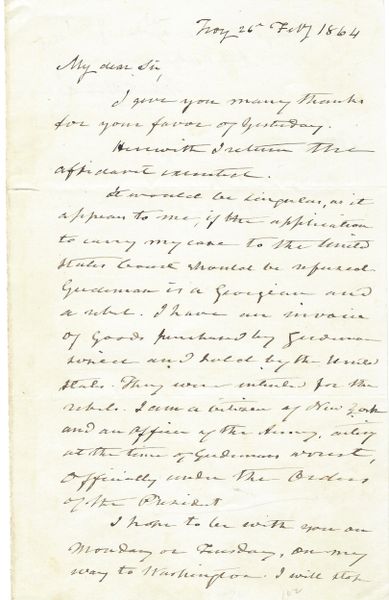 Troy 26th Feby 1864
My dear Sir,
I give you many thanks
for your favor of Yesterday.
Herewith I return the
affidavit executed.
It would be singular, as it
appears to me, if the application
to carry my case to the United
States Court should be refused.
Gudeman is a Georgian and
a rebel. I have an invoice
of Goods purchased by Gudeman
seized and held by the United
States. They were intended for the
rebels. I am a citizen of New York
and an officer of the Army, acting
at the time of Gudemans arrest,
Officially under the Orders
of the President
I hope to be with you on
Monday or Tuesday, on my
way to Washington. I will stop